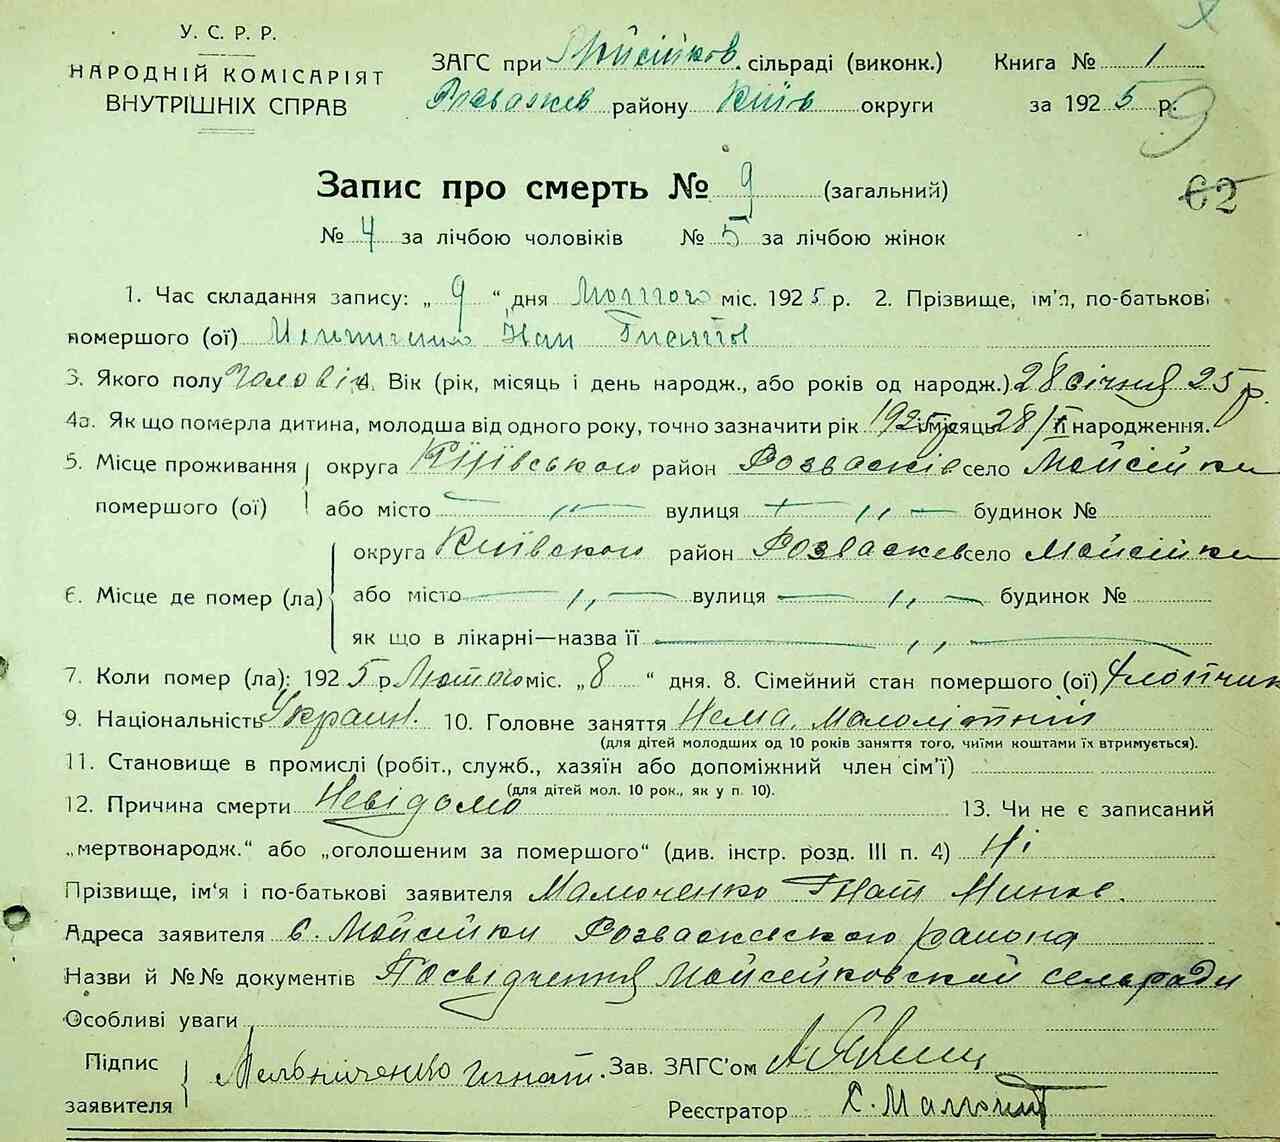 У.С.Р.Р.
НАРОДНІЙ КОМІСАРІЯТ
ВНУТРІШНІХ СПРАВ
ЗАГС при Мойсійков. сільраді (виконк.) Книга № 1
Розважев району Київ округи за 1925 р.
9
62
Запис про смерть № 9 (загальний)
№ 4 за лічбою чоловіків № 5 за лічбою жінок
1. Час складання запису: „ 9 “ дня Лютого міс. 1925 р. 2. Прізвище, ім'я, по-батькові
помершого (ої) Мельниченко Іван Гнатів
3. Якого полу Чоловік 4. Вік (рік, місяць і день народж., або років од народж.) 28 січня 25 р.
4а. Як що померла дитина, молодша від одного року, точно зазначити рік 1925 р місяць 28/І народження.
5. Місце проживання помершого (ої) округа Київського район Розважів село Мойсійки
або місто „ вулиця „ будинок №
6. Місце де помер (ла) округа Київского район Розважев село Мойсійки
або місто „ вулиця „ будинок №
як що в лікарні—назва її „
7. Коли помер (ла): 1925 р Лютого міс. „8“ дня. 8. Сімейний стан помершого (ої) Хлопчик
9. Національність Украин. 10. Головне заняття Нема. Малолітній
(для дітей молодших од 10 років заняття того, чиїми коштами їх втримується).
11. Становище в промислі (робіт., служб., хазяїн або допоміжний член сім'ї)
(для дітей мол. 10 рок., як у п. 10).
12. Причина смерти Невідомо 13. Чи не є записаний
„мертвонародж.“ або „оголошеним за помершого“ (див. інстр. розд. III п. 4) Ні
Прізвище, ім'я і по-батькові заявителя Гнат
Адреса заявителя с. Мойсійки Розважевского района
Назви й №№ документів Посвідчення Мойсейковской сельради
Особливі уваги
Підпис заявителя Мельниченко Игнат. Зав. ЗАГС'ом
Реєстратор